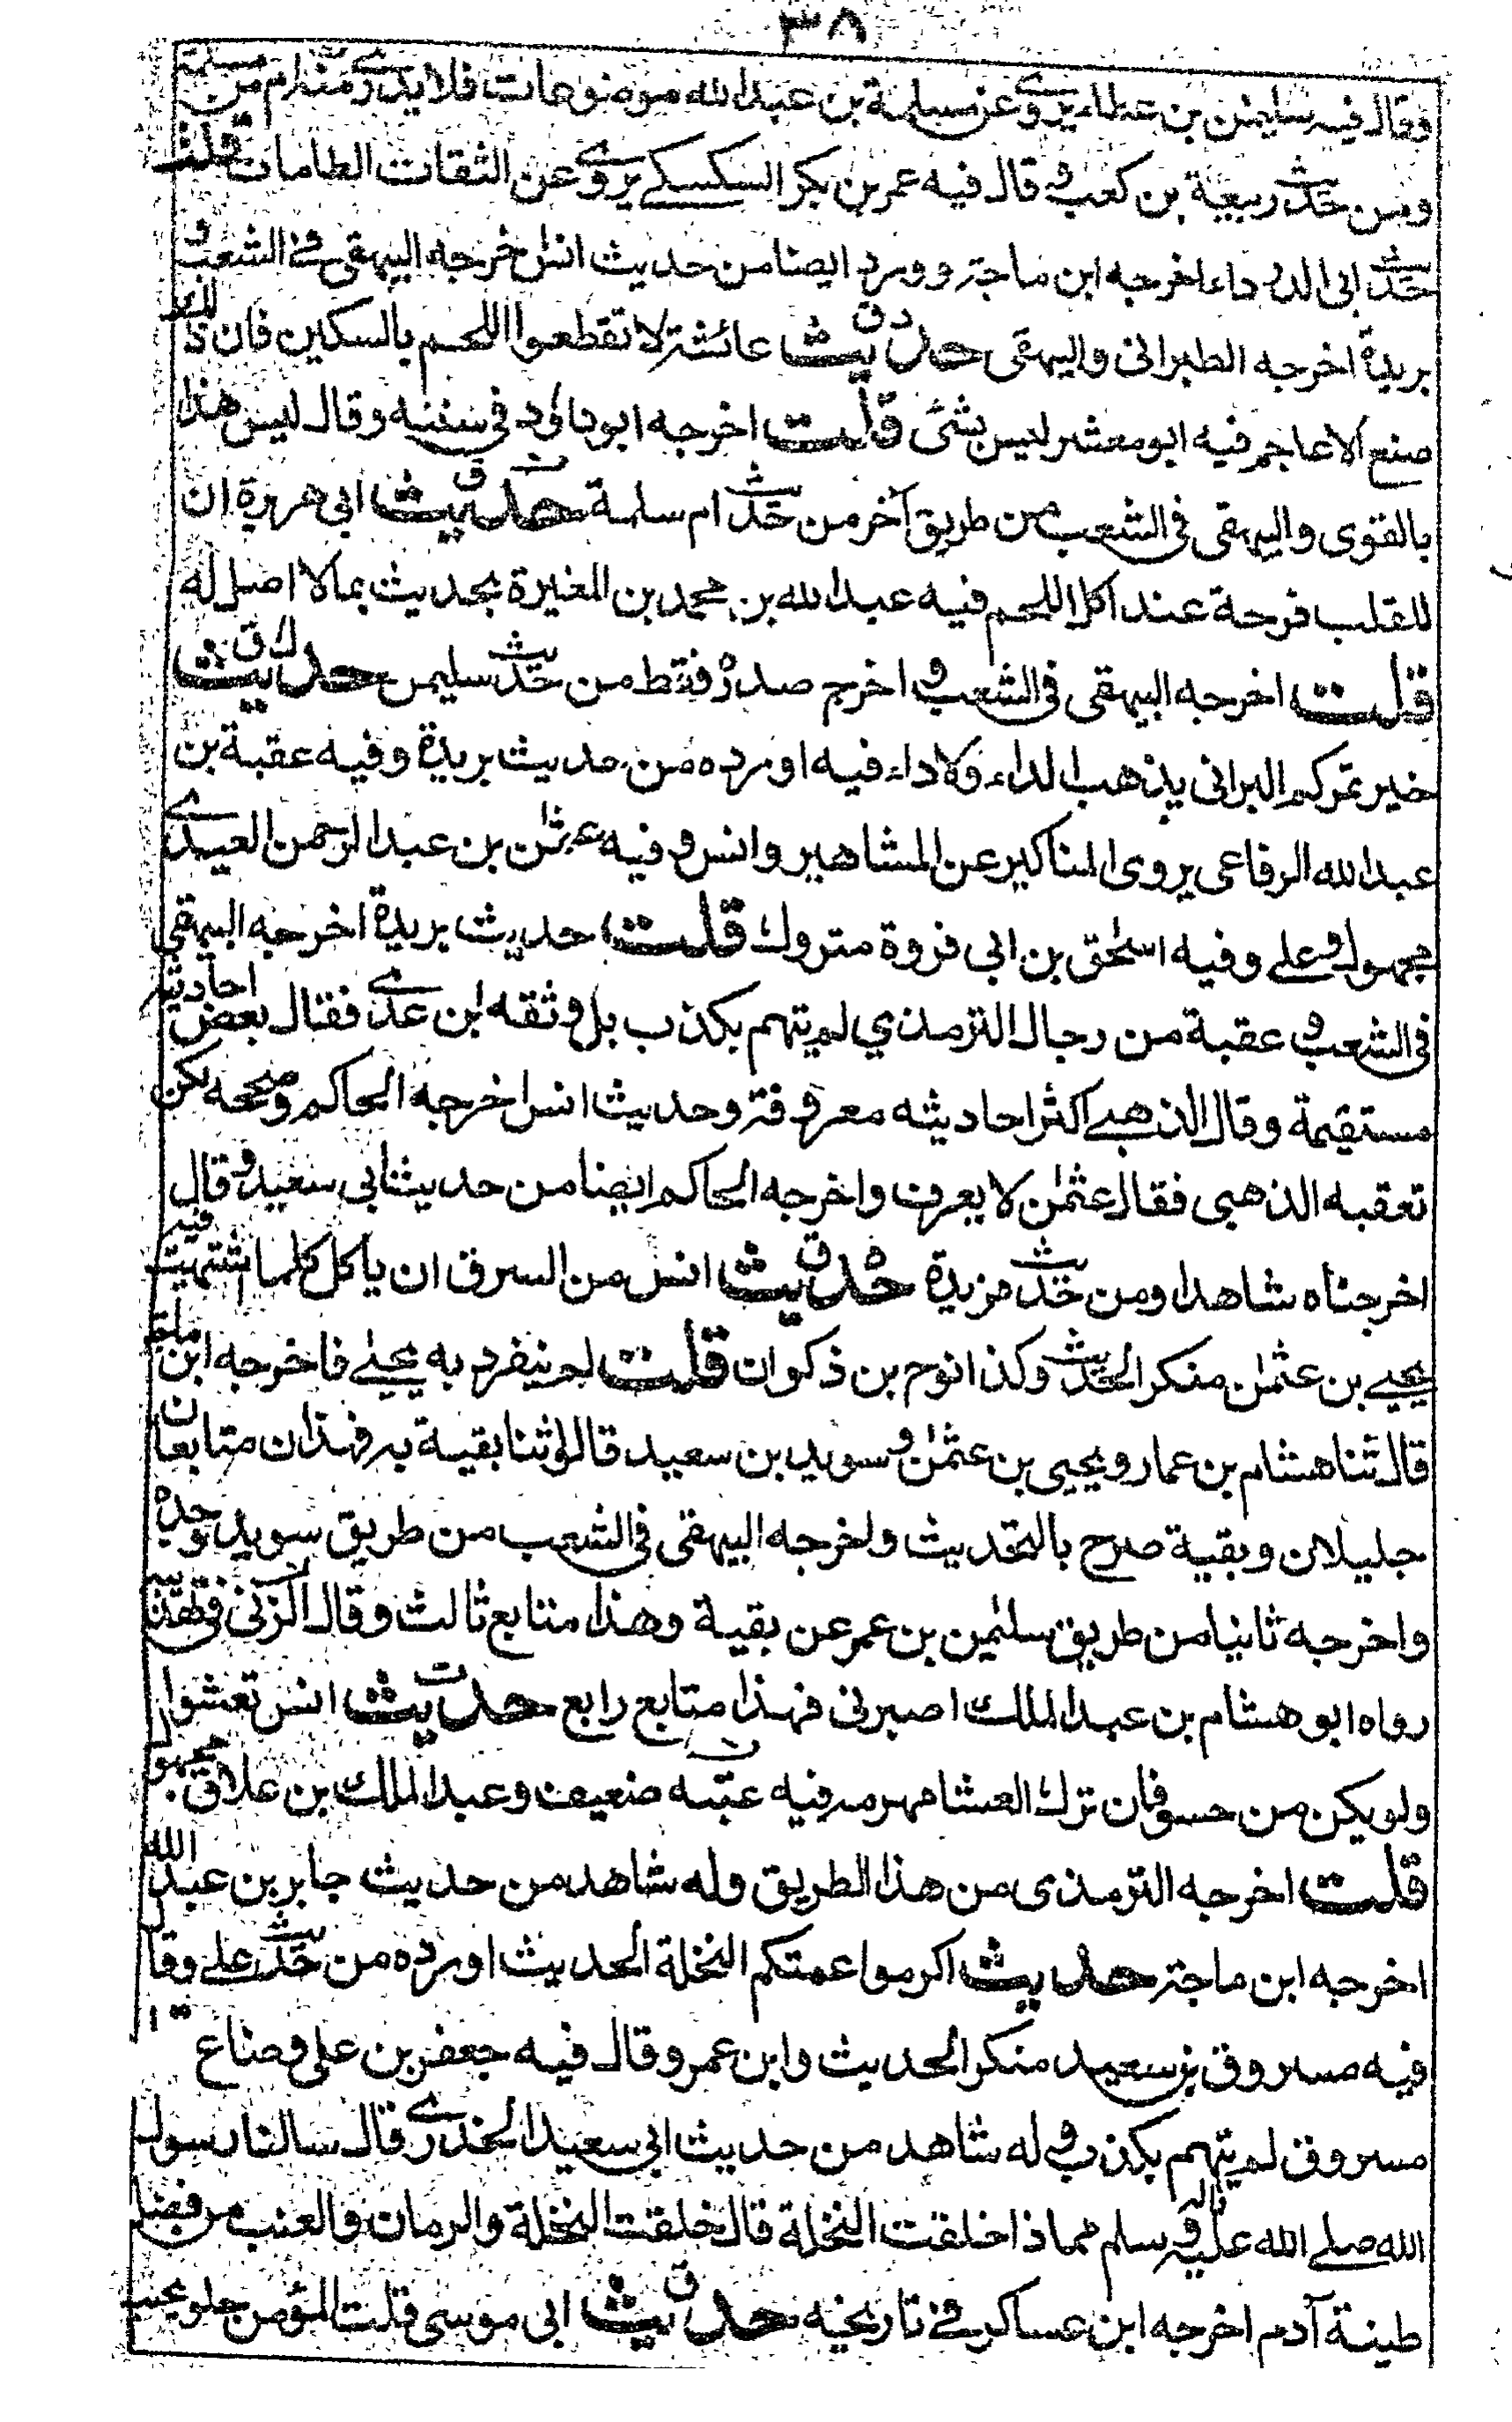 ٣٨
وقال فيه سليمن بن عطاء يروي عن مسلمة بن عبدالله موضوعات فلا يدري منه ام من مسلمة
ومن حديث ربيعة بن كعب و قال فيه عمر بن بكر السكسكي يروي عن الثقات الطامات قلت
حديث ابى الدرداء اخرجه ابن ماجة وورد ايضا من حديث انس خرجه البيهقى فى الشعب و
بريدة اخرجه الطبرانى والبيهقى حديث عائشة لا تقطعوا اللحم بالسكين فان ذلك
صنع الاعاجم فيه ابو معشر ليس بشئ قلت اخرجه ابو داؤد فى سننه وقال ليس هذا
بالقوى والبيهقى فى الشعب من طريق آخر من حديث ام سلمة حديث ابى هريرة ان
للقلب فرحة عند اكل اللحم فيه عبدالله بن محمد بن المغيرة يحديث بمالا اصل له
قلت اخرجه البيهقى فى الشعب و اخرج صدره فقط من حديث سليمن حديث
خير تمركم البرانى يذهب الداء ولا داء فيه اورده من حديث بريدة وفيه عقبة بن
عبدالله الرفاعى يروى المناكير عن المشاهير وانس و فيه عثمن بن عبدالرحمن العبدي
مجهول و علي وفيه اسحق بن ابى فروة متروك قلت حديث بريدة اخرجه البيهقى
فى الشعب و عقبة من رجال الترمذي لم يتهم بكذب بل وثقه ابن عدي فقال بعض احاديثه
مستقيمة وقال الذهبي اكثر احاديثه معروفة وحديث انس اخرجه الحاكم وصححه لكن
تعقبه الذهبى فقال عثمن لا يعرف واخرجه الحاكم ايضا من حديث ابى سعيد و قال
اخرجناه شاهدا ومن حديث مزيدة حديث انس من السرف ان ياكل كلما اشتهيت فيه
يحيي بن عثمن منكر الحديث وكذا نوح بن ذكوان قلت لم ينفرد به يحيي فاخرجه ابن ماجة
قال ثنا هشام بن عمار ويحيى بن عثمن و سويد بن سعيد قالوا ثنا بقية به فهذان متابعان
جليلان وبقية صرح بالتحديث واخرجه البيهقى فى الشعب من طريق سويد وحده
واخرجه ثانيا من طريق سليمن بن عمر عن بقية وهذا متابع ثالث وقال
رواه ابو هشام بن عبدالملك فهذا متابع رابع حديث انس تعشوا
ولو بكف من حشف فان ترك العشا مهرمة فيه عنبسه ضعيف وعبدالملك بن علاق مجهول
قلت اخرجه الترمذى من هذا الطريق وله شاهد من حديث جابر بن عبد الله
اخرجه ابن ماجة حديث اكرموا عمتكم النخلة الحديث اورده من حديث علي وقال
فيه مسروق بن سعيد منكر الحديث وابن عمر وقال فيه جعفر بن على وضاع
مسروق لم يتهم بكذب و له شاهد من حديث ابى سعيد الخدري قال سالنا رسول
الله صلي الله عليه واله وسلم مماذا خلقت النخلة قال خلقت النخلة والرمان والعنب من فضل
طينة آدم اخرجه ابن عساكر فى تاريخه حديث ابى موسى قلت المؤمن حلو يحب